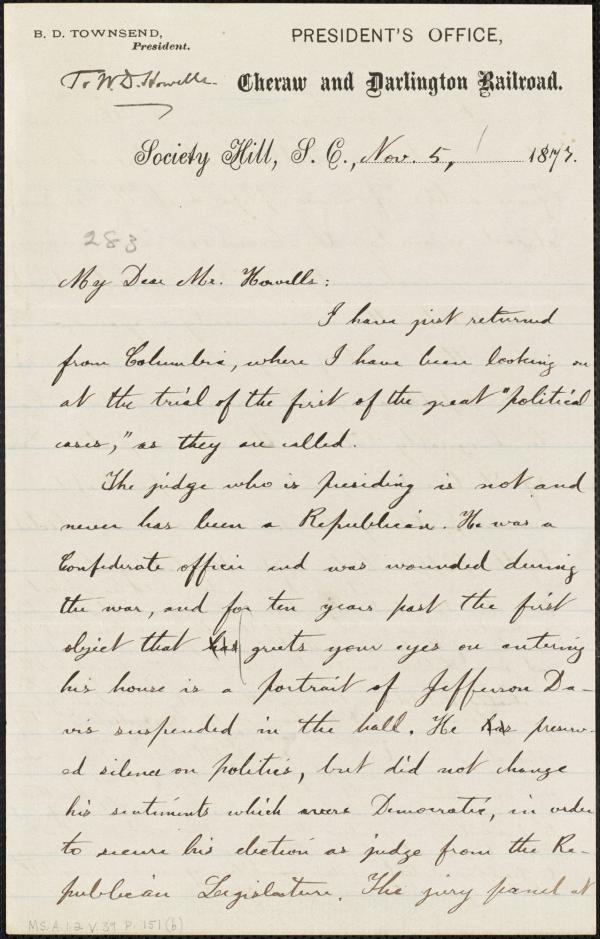 B. D. TOWNSEND,
President.
PRESIDENT'S OFFICE,
To W. D. Howells.
Cheraw and Darlington Railroad.
Society Hill, S. C., Nov. 5, 1877.
283
My Dear Mr. Howells:
I have just returned
from Columbia, where I have been looking on
at the trial of the first of the great "political
cases," as they are called.
The judge who is presiding is not and
never has been a Republican. He was a
Confederate officer and was wounded during
the war, and for ten years past the first
object that has greets your eyes on entering
his house is a portrait of Jefferson Da-
vis suspended in the hall. He has preserv-
ed silence on politics, but did not change
his sentiments which were Democratic, in order
to secure his election as judge from the Re-
publican Legislature. The jury panel at
MS. A. 1.2 V. 39 P. 151 (b)